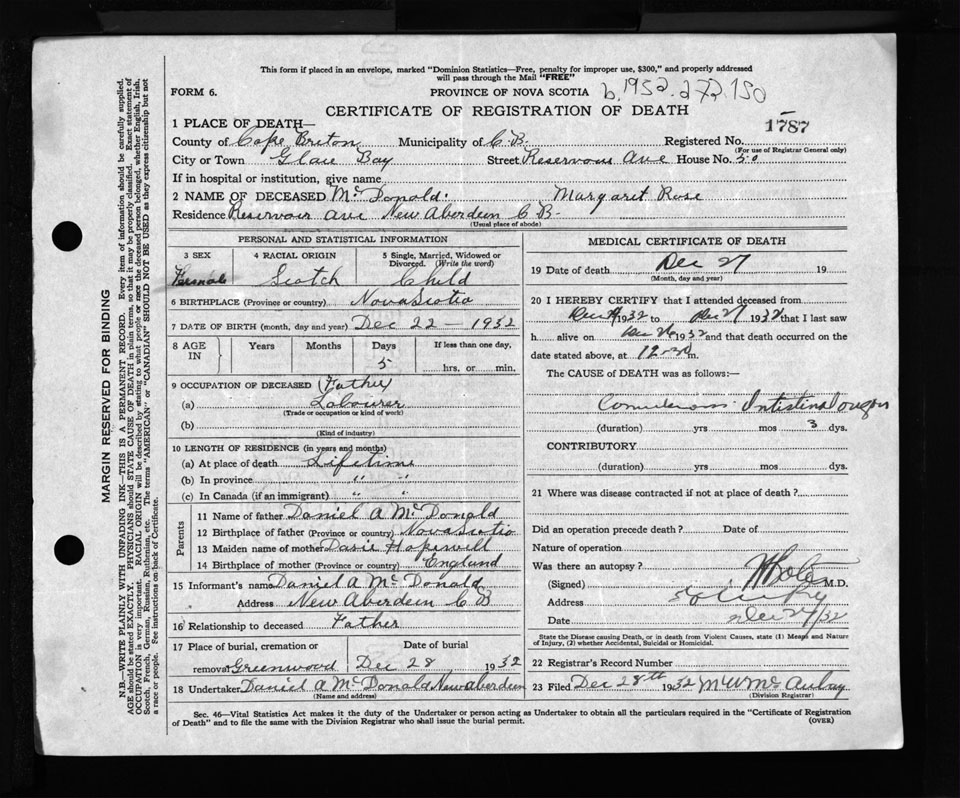 This form if placed in an envelope, marked "Dominion Statistics—Free, penalty for improper use, $300," and properly addressed
will pass through the Mail "FREE"
FORM 6.
PROVINCE OF NOVA SCOTIA
b. 1932.272.150
CERTIFICATE OF REGISTRATION OF DEATH
1787
1 PLACE OF DEATH—
County of Cape Breton Municipality of C.B. Registered No.
(For use of Registrar General only)
City or Town Glace Bay Street Reservour Ave House No. 50
If in hospital or institution, give name
2 NAME OF DECEASED McDonald. Margaret Rose
Residence Reservoir Ave New Aberdeen C B-
(Usual place of abode)
PERSONAL AND STATISTICAL INFORMATION
3 SEX 4 RACIAL ORIGIN 5 Single, Married, Widowed or Divorced. (Write the word)
Female Scotch Child
6 BIRTHPLACE (Province or country) Nova Scotia
7 DATE OF BIRTH (month, day and year) Dec 22 — 1932
8 AGE IN Years Months Days If less than one day,
5 hrs. or min.
9 OCCUPATION OF DECEASED (Father
(a) Labourer
(Trade or occupation or kind of work)
(b)
(Kind of industry)
10 LENGTH OF RESIDENCE (in years and months)
(a) At place of death Lifetime
(b) In province " "
(c) In Canada (if an immigrant) " "
Parents
11 Name of father Daniel A McDonald
12 Birthplace of father (Province or country) Nova Scotia
13 Maiden name of mother Hopewill
14 Birthplace of mother (Province or country) England
15 Informant's name Daniel A McDonald
Address New Aberdeen C B
16 Relationship to deceased Father
17 Place of burial, cremation or removal Date of burial
Greenwood Dec 28 1932
18 Undertaker Daniel A McDonald New Aberdeen
(Name and address)
MEDICAL CERTIFICATE OF DEATH
19 Date of death Dec 27 19
(Month, day and year)
20 I HEREBY CERTIFY that I attended deceased from
1932 to Dec 27 1932 that I last saw
h alive on Dec 26 1932 and that death occurred on the
date stated above, at m.
The CAUSE of DEATH was as follows:—
Intestinal
(duration) yrs mos 3 dys.
CONTRIBUTORY
(duration) yrs. mos. dys.
21 Where was disease contracted if not at place of death?
Did an operation precede death? Date of
Nature of operation
Was there an autopsy?
(Signed) M.D.
Address
Date Dec 27/32
State the Disease causing Death, or in death from Violent Causes, state (1) Means and Nature
of Injury, (2) whether Accidental, Suicidal or Homicidal.
22 Registrar's Record Number
23 Filed Dec 28th 1932 McAulay
(Division Registrar)
Sec. 46—Vital Statistics Act makes it the duty of the Undertaker or person acting as Undertaker to obtain all the particulars required in the "Certificate of Registration
of Death" and to file the same with the Division Registrar who shall issue the burial permit.
(OVER)
MARGIN RESERVED FOR BINDING
N.B.—WRITE PLAINLY WITH UNFADING INK—THIS IS A PERMANENT RECORD. Every item of information should be carefully supplied.
AGE should be stated EXACTLY. PHYSICIANS should STATE CAUSE OF DEATH in plain terms, so that it may be properly classified. Exact statement of
OCCUPATION is very important. RACIAL ORIGIN will be described by stating to what people or race the deceased person belonged, whether English, Irish,
Scotch, French, German, Russian, Ruthenian, etc. The terms "AMERICAN" or "CANADIAN" SHOULD NOT BE USED as they express citizenship but not
a race or people. See instructions on back of Certificate.